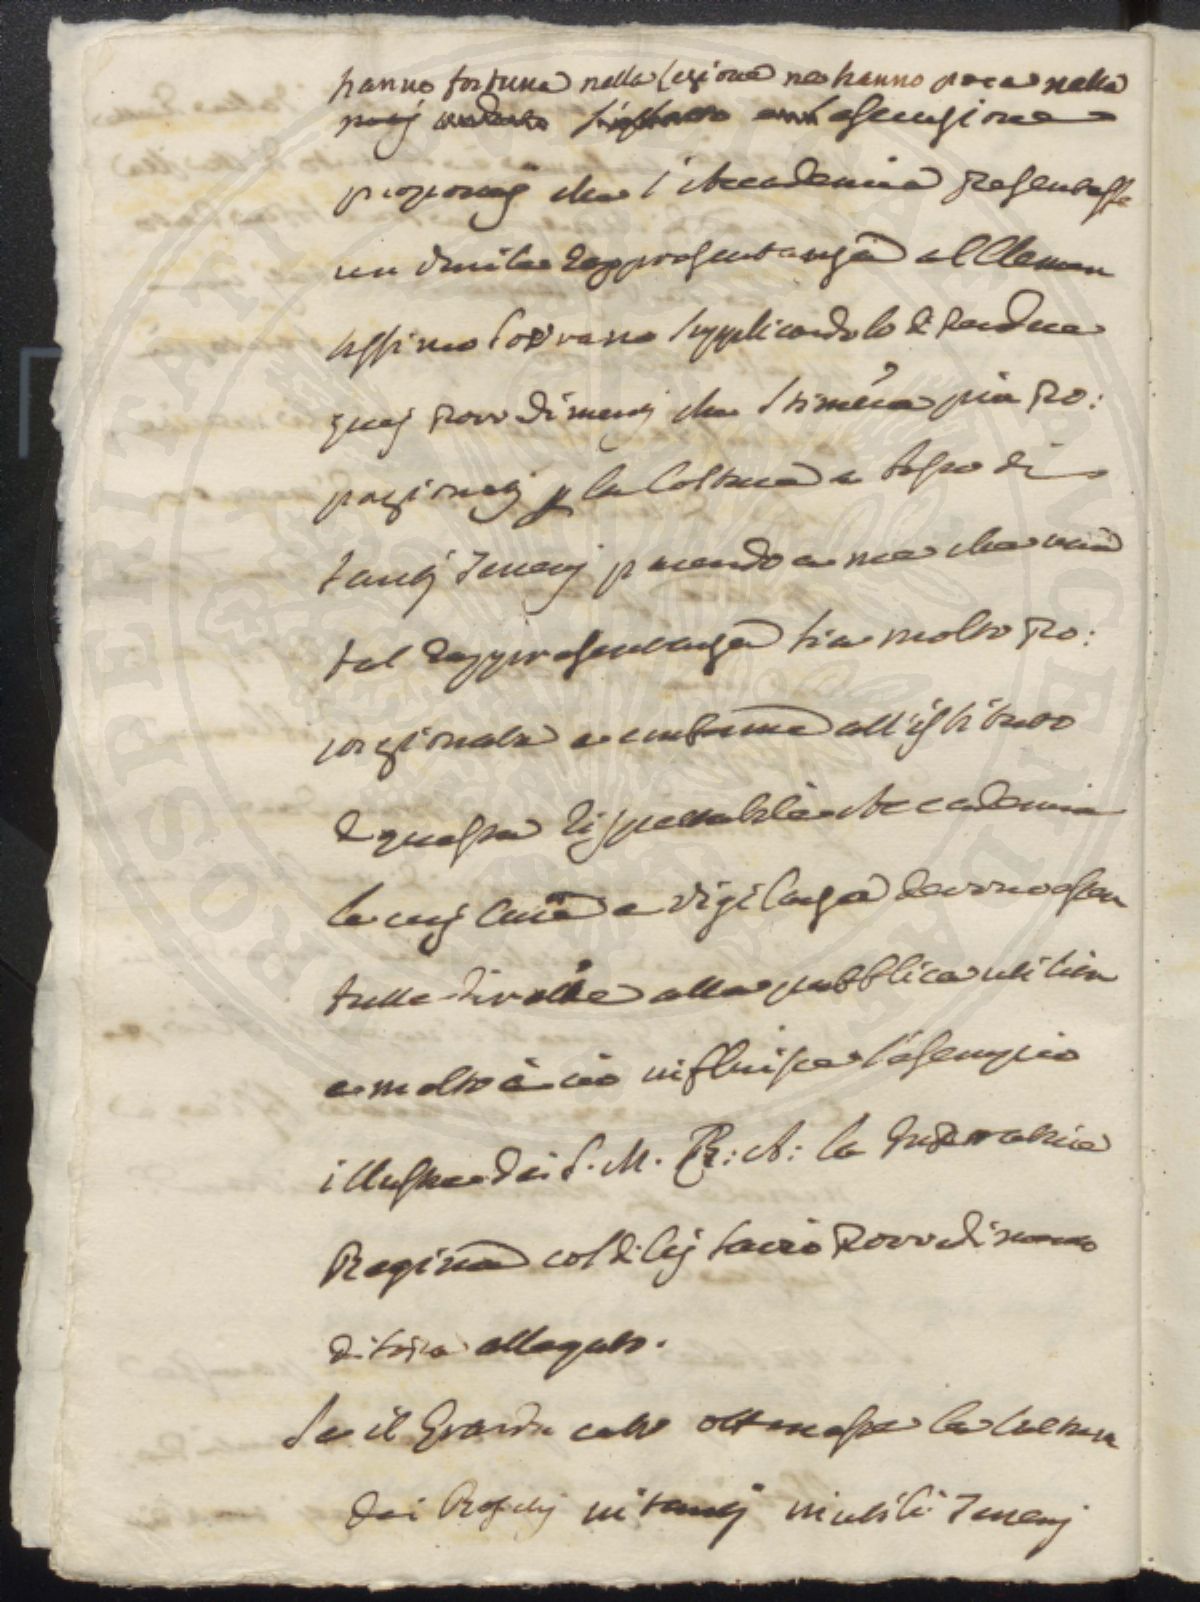 hanno fortuna nella lezione ne hanno poca nella
esecuzione
proponej che l'Accademia presentasse
un umile rappresentanza al Clemen
tissimo Sovrano supplicandolo di prendere
quej provvedimenti che stimerà più pro:
porzionatj p la coltura a bosco di
tantj Terrenj parendo a me che una
tal rappresentanza sia molto pro:
porzionata e conforme all'istituto
di questa rispettabile Accademia
le cuj cure e vigilanza devono esser
tutte dirette alla pubblica utilità
e molto a ciò influisce l'esempio
illustre di S. M. R: A: la
Regina col di lej savio provvedimento
di sopra allegato.
Se il Grande caldo ottenesse la coltura
dei Boschj in tantj inutili Terrenj
PROSPERITATI PUBLICAE AUGENDAE